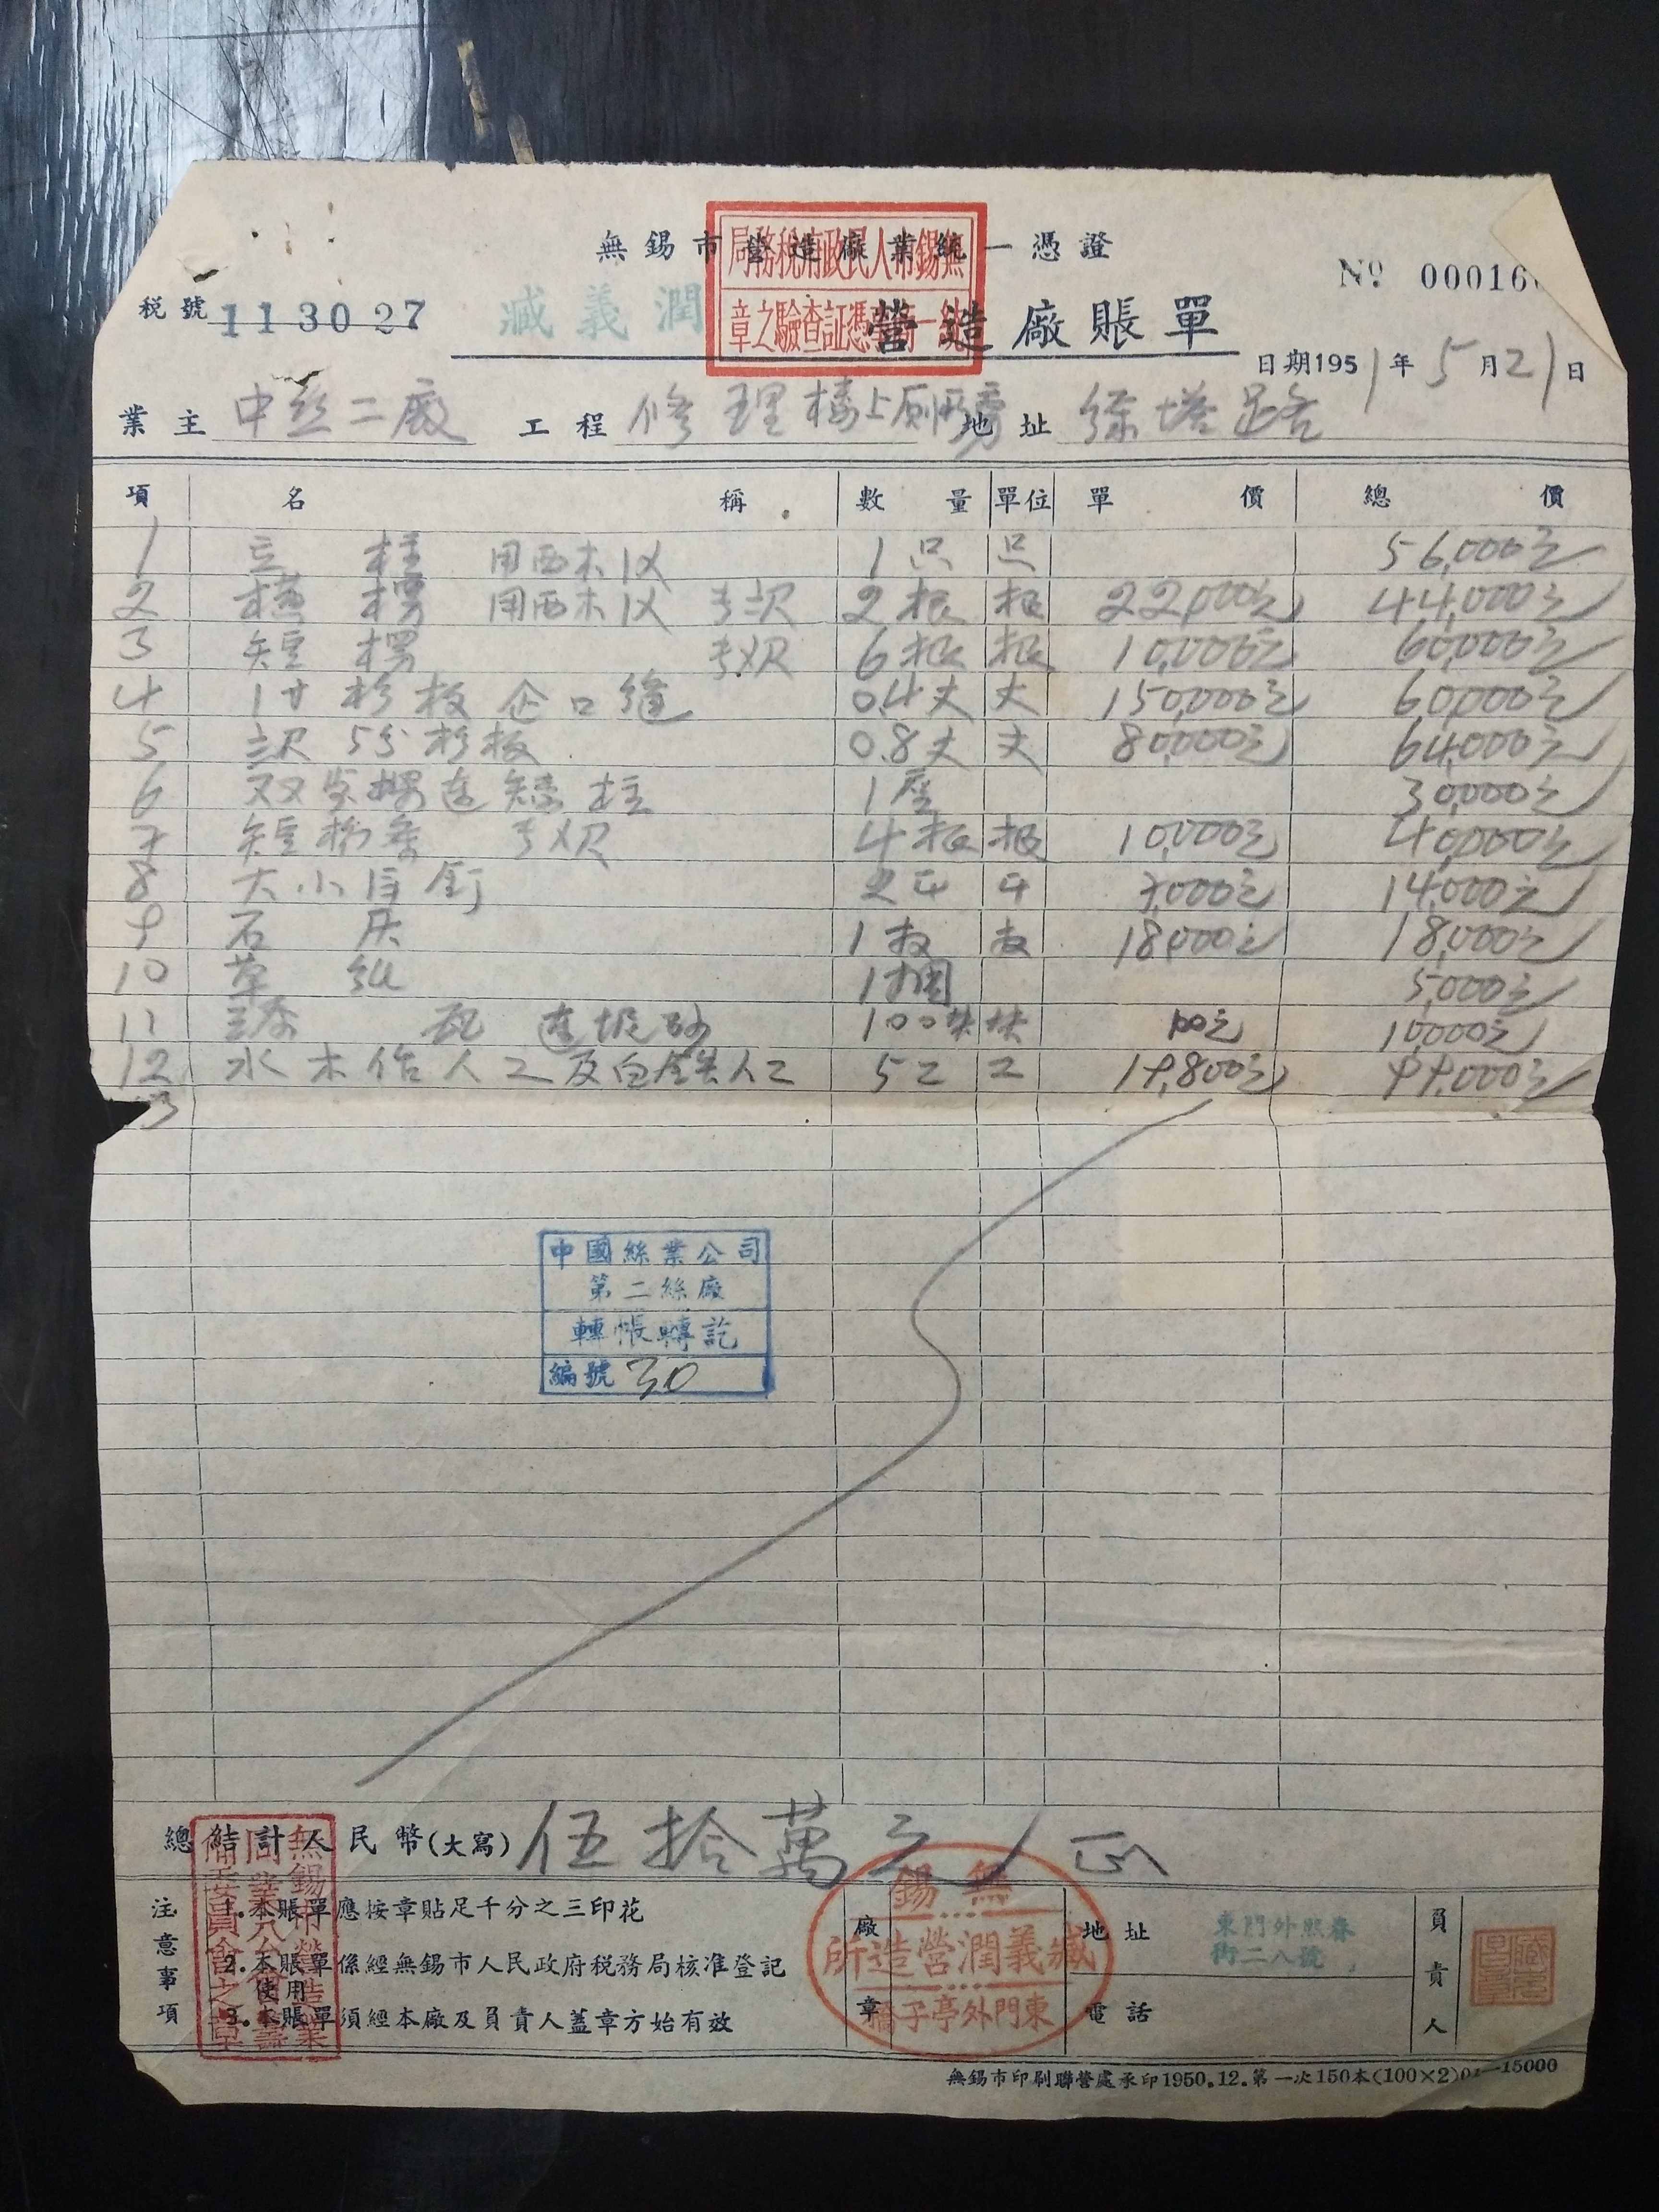 無錫市營造廠業統一憑證
無錫市人民政府稅務局
憑証查驗之章
№ 00016
稅號 113027
臧義潤 營造廠賬單
日期1951年5月21日
業主 中絲二廠 工程 修理樓上廁所 地址
項 名稱 數量 單位 單價 總價
1 立柱 用西木 1只 只 56,000元
2 橫楞 用西木 2根 根 22,000元 44,000元
3 短楞 6根 根 10,000元 60,000元
4 1寸杉板企口縫 0.4丈 丈 150,000元 60,000元
5 5分杉板 0.8丈 丈 80,000元 64,000元
6 双 楞連矮柱 1座 30,000元
7 短 4根 根 10,000元 40,000元
8 大小洋釘 2斤 斤 7,000元 14,000元
9 石灰 1 18,000元 18,000元
10 草紙 1捆 5,000元
11 瓦 連坭砂 100块 块 100元 10,000元
12 水木作人工及白鐵人工 5工 工 19,800元 99,000元
13
中國絲業公司
第二絲廠
轉帳轉訖
編號 30
總結計人民幣(大寫) 伍拾萬元正
注意事項
1.本賬單應按章貼足千分之三印花
2.本賬單係經無錫市人民政府稅務局核准登記
使用
3.本賬單須經本廠及負責人蓋章方始有效
無錫市營造業
同業公會籌
備委員會之章
廠章
無錫
臧義潤營造所
東門外亭子橋
地址 東門外熙春
街二八號
電話
負責人
無錫市印刷聯營處承印1950.12.第一次150本(100×2)01—15000